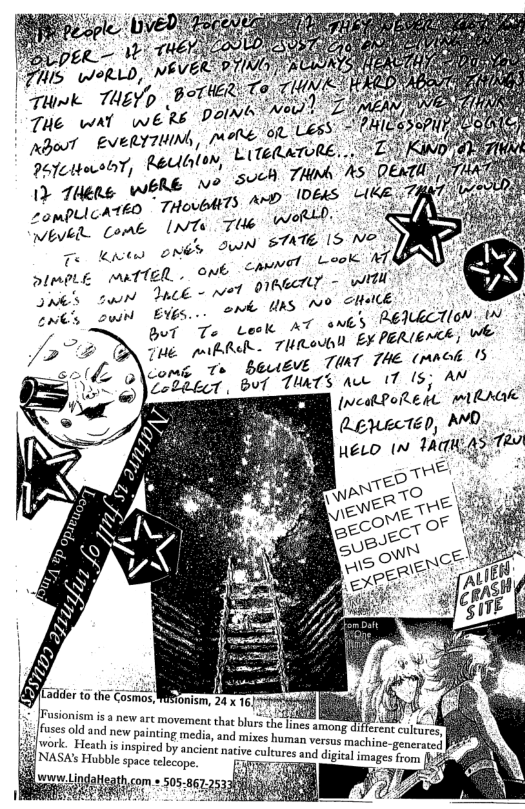 IF PEOPLE LIVED FOREVER - IF THEY NEVER
OLDER - IF THEY COULD JUST GO ON LIVING IN
THIS WORLD, NEVER DYING, ALWAYS HEALTHY - DO YOU
THINK THEY'D BOTHER TO THINK HARD ABOUT THINGS
THE WAY WE'RE DOING NOW? I MEAN, WE THINK
ABOUT EVERYTHING, MORE OR LESS - PHILOSOPHY, LOGIC,
PSYCHOLOGY, RELIGION, LITERATURE... I KIND OF THINK
IF THERE WERE NO SUCH THING AS DEATH, THAT
COMPLICATED THOUGHTS AND IDEAS LIKE THAT WOULD
NEVER COME INTO THE WORLD.
TO KNOW ONE'S OWN STATE IS NO
SIMPLE MATTER. ONE CANNOT LOOK AT
ONE'S OWN FACE - NOT DIRECTLY - WITH
ONE'S OWN EYES... ONE HAS NO CHOICE
BUT TO LOOK AT ONE'S REFLECTION IN
THE MIRROR. THROUGH EXPERIENCE, WE
COME TO BELIEVE THAT THE IMAGE IS
CORRECT, BUT THAT'S ALL IT IS; AN
INCORPOREAL MIRAGE
REFLECTED, AND
HELD IN FAITH AS TRU
Nature is full of infinite causes
Leonardo da Vinci
I WANTED THE
VIEWER TO
BECOME THE
SUBJECT OF
HIS OWN
EXPERIENCE.
ALIEN
CRASH
SITE
rom Daft
One
Ladder to the Cosmos, fusionism, 24 x 16.
Fusionism is a new art movement that blurs the lines among different cultures,
fuses old and new painting media, and mixes human versus machine-generated
work. Heath is inspired by ancient native cultures and digital images from
NASA's Hubble space telecope.
www.LindaHeath.com • 505-867-2533